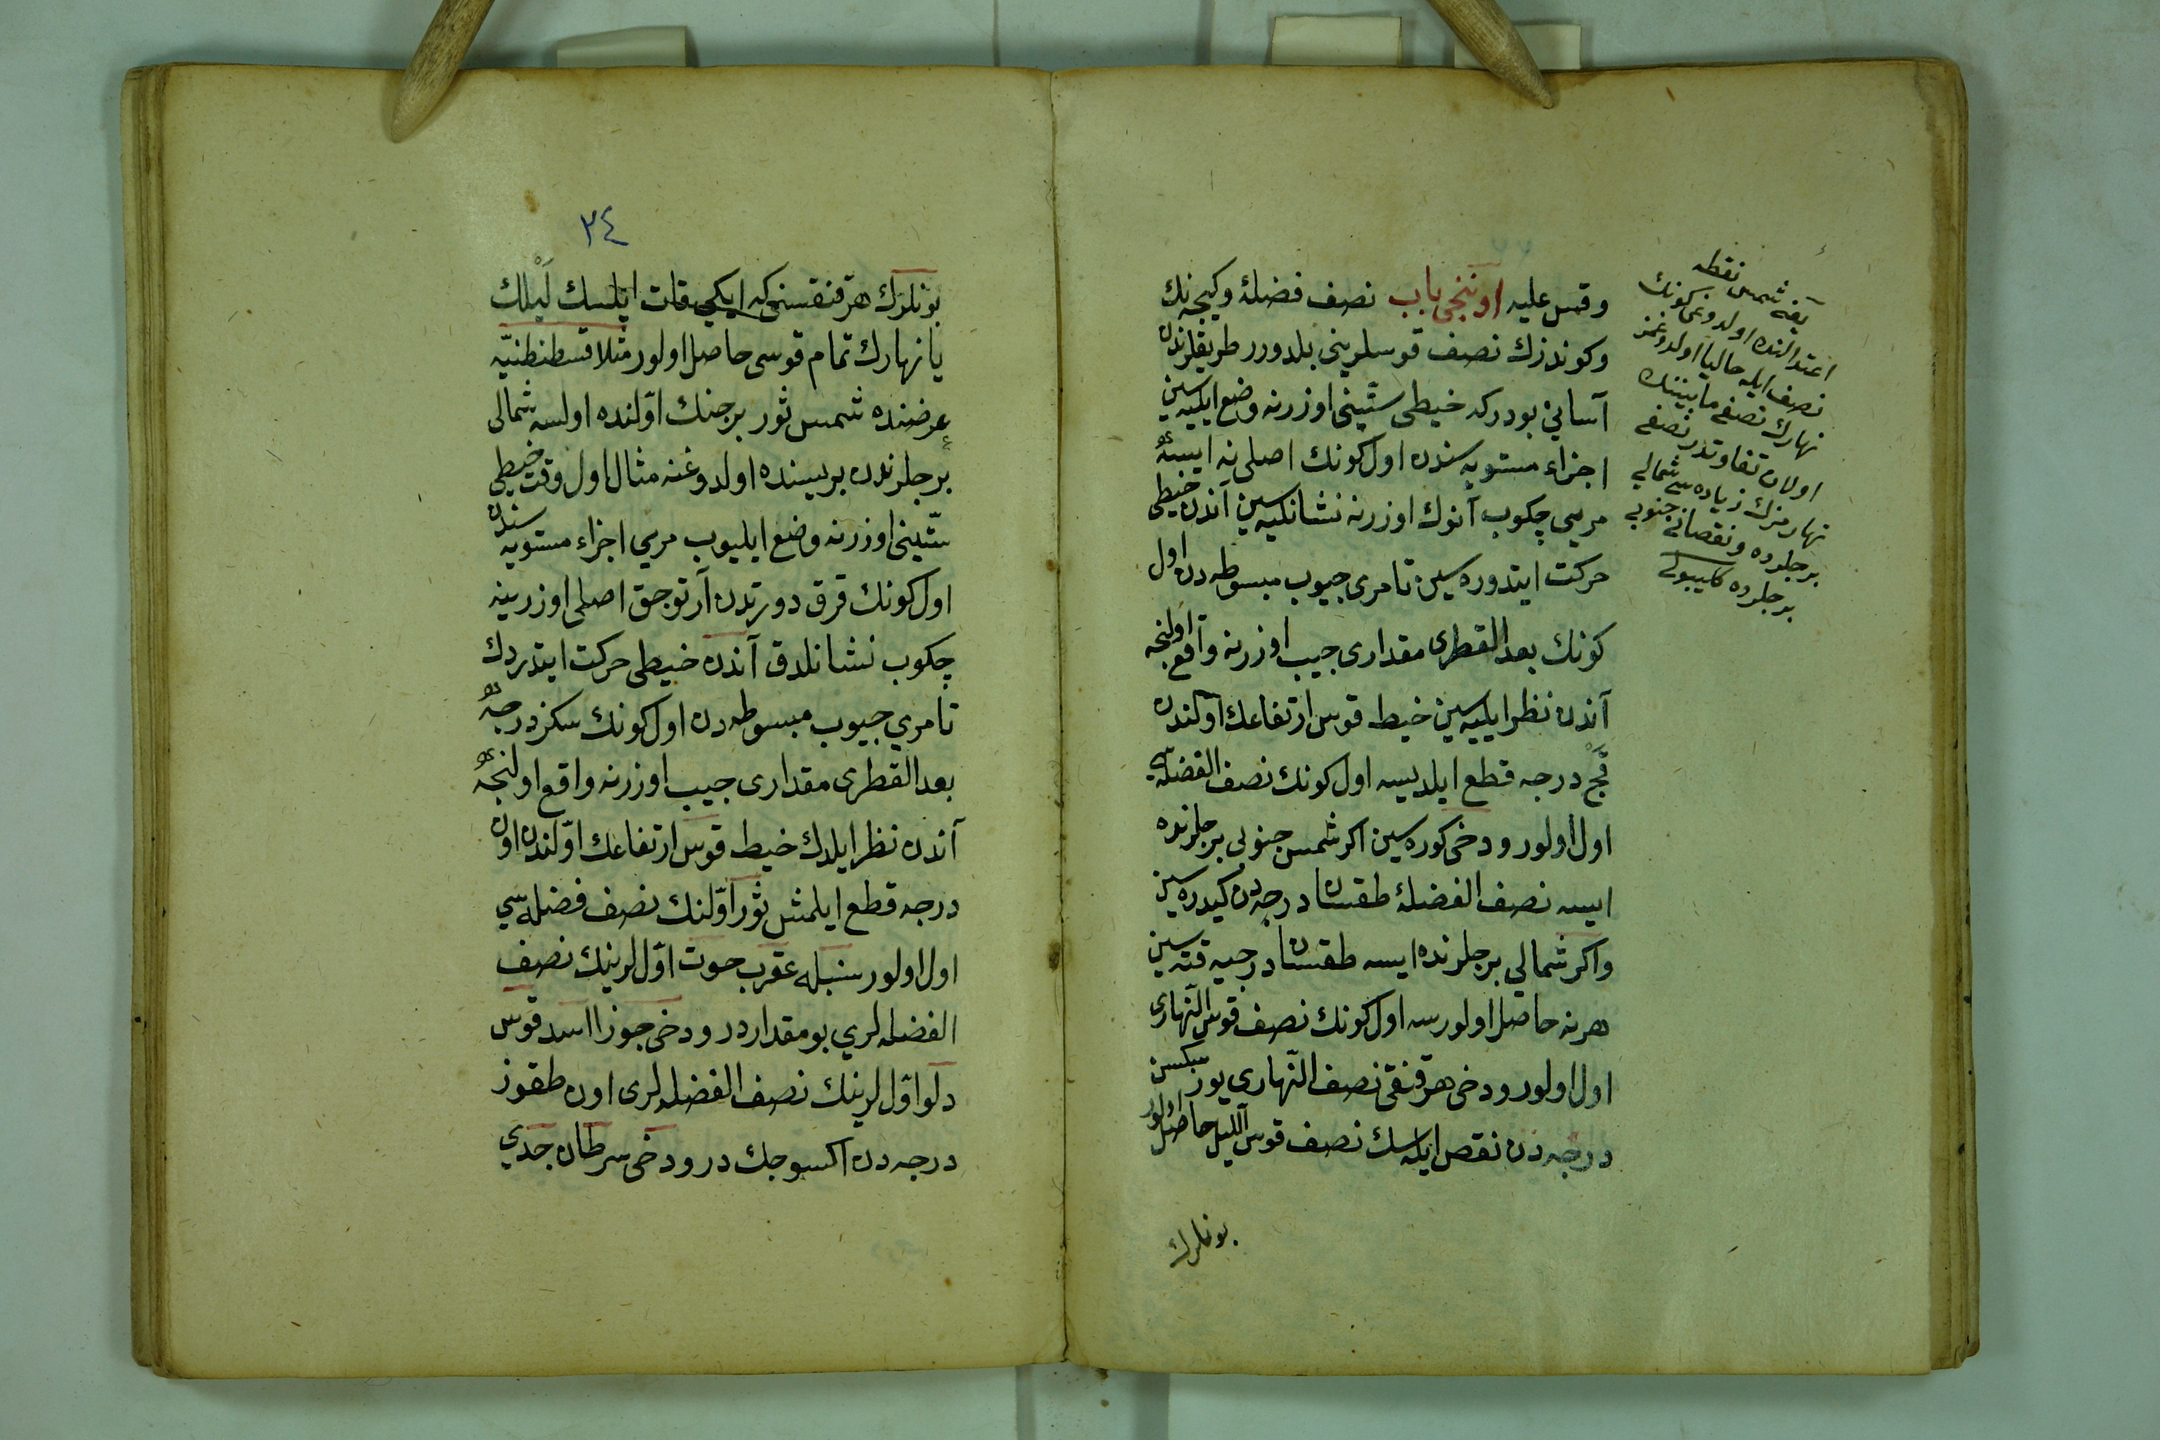 وقس عليه اوننجى باب نصف فضلۀ وكيجه نك
وكوندزك نصف قوسلرينى بلدورر طريقلرندن
آسانى بودركه خيطى ستينى اوزرنه وضع ايليه سين
اجزاء مستويه سندن اول كونك اصلى نه ايسه
مريى چكوب آنوك اوزرنه نشانكيه سين آندن خيطى
حركت ايتدوره سين تا مرى جيوب مبسوطه دن اول
كونك بعد القطرى مقدارى جيب اوزرنه واقع اولنجه
آندن نظر ايليه سين خيط قوس ارتفاعك اوّلندن
قَچْ درجه قطع ايلديسه اول كونك نصف الفضله سى
اول اولور ودخى كوره سين اكر شمس جنوبى برجلرنده
ايسه نصف الفضلۀ طقسان درجه دن كيدره سين
واكر شمالى برجلرنده ايسه طقسان درجيه قته سين
هرنه حاصل اولورسه اول كونك نصف قوس النّهارى
اول اولور ودخى هر قنقى نصف النّهارى يوز سكسن
درجه دن نقص ايله سك نصف قوس اللّيل حاصل اولور
بونلرك
يعنى شمس نقطه
اعتدالنده اولدوغى كونك
نصف ايله حاليا اولدوغمز
نهارك نصفى مابيننك
اولان تفاوتدر نصف
نهارمزك زياده سى شمالى
برجلرده ونقصانى جنوبى
برجلرده كلييولى
٢٤
بونلرك هر قنقسنى كه ايكى قات ايلسك لَيْلك
يا نهارك تمام قوسى حاصل اولور مثلا قسطنطنيّه
عرضنده شمس ثور برجنك اوّلنده اولسه شمالى
برجلرندن بريسنده اولدوغنه مثال اول وقت خيطى
ستّينى اوزرنه وضع ايليوب مريى اجزاء مستويه سندن
اول كونك قرق دورتدن آرتوجق اصلى اوزرينه
چكوب نشانلدق آندن خيطى حركت ايتدردك
تا مريى جيوب مبسوطه دن اول كونك سكز درجه
بعد القطرى مقدارى جيب اوزرنه واقع اولنجه
آندن نظر ايلدك خيط قوس ارتفاعك اوّلندن اون
درجه قطع ايلمش ثور اوّلنك نصف فضله سى
اول اولور سنبله عقرب حوت اوّللرينك نصف
الفضله لرى بو مقداردر ودخى جوزا اسد قوس
دلو اوّللرينك نصف الفضله لرى اون طقوز
درجه دن اكسوجك در ودخى سرطان جدى